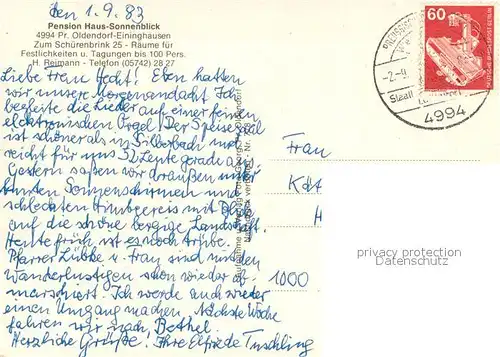 den 1.9.83
Pension Haus-Sonnenblick
4994 Pr. Oldendorf-Eininghausen
Zum Schürenbrink 25 - Räume für
Festlichkeiten u. Tagungen bis 100 Pers.
H. Reimann - Telefon (05742) 28 27
Liebe Frau Hecht! Eben hatten
wir unsere Morgenandacht. Ich
begleite die Lieder auf einer feinen
elektronischen Orgel! Der Speisesaal
ist schöner als in Silberbach und
reicht für uns 52 Leute gerade aus.
Gestern saßen wir draußen unter
bunten Sonnenschirmen und
schleckten Himbeereis mit Blick
auf die schöne bergige Landschaft.
Heute früh ist es noch trübe.
Pfarrer Lübke u. Frau sind mit den
Wanderlustigen schon wieder ab-
marschiert. Ich werde auch wieder
einen Umgang machen. Nächste Woche
fahren wir nach Bethel.
Herzliche Grüße! Ihre Elfriede Tuschling
60
DEUTSCHE BUNDESPOST BERLIN
-2.-9.
Staatl
4994
Frau
Kät
H
1000
privacy protection
Datenschutz